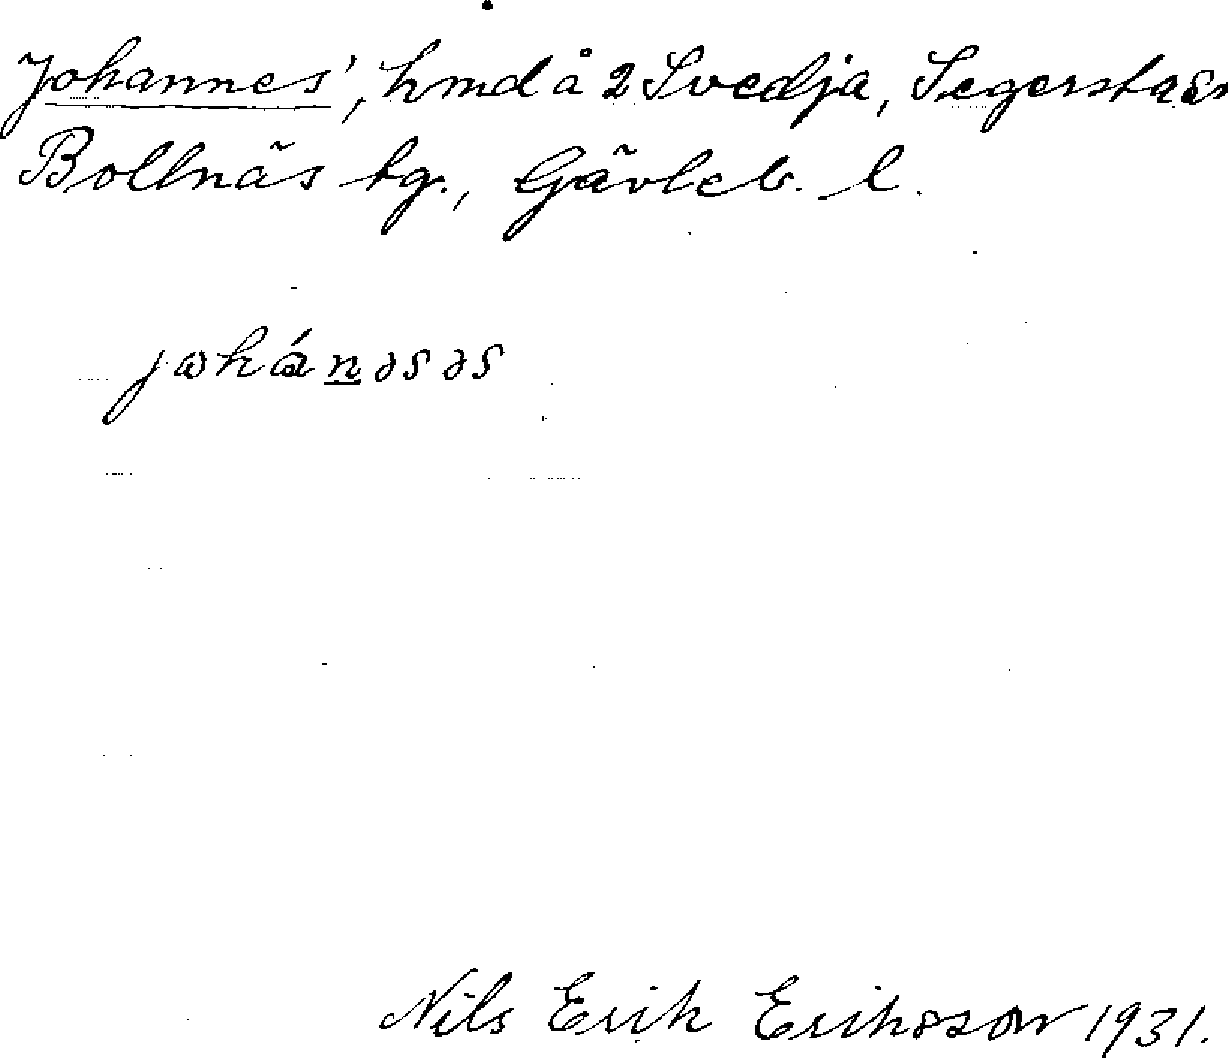 Johannes', hmd å 2 Svedja, Segersta sn
Bollnäs tg., Gävleb. l.
johánəsəs
Nils Erik Eriksson 1931.